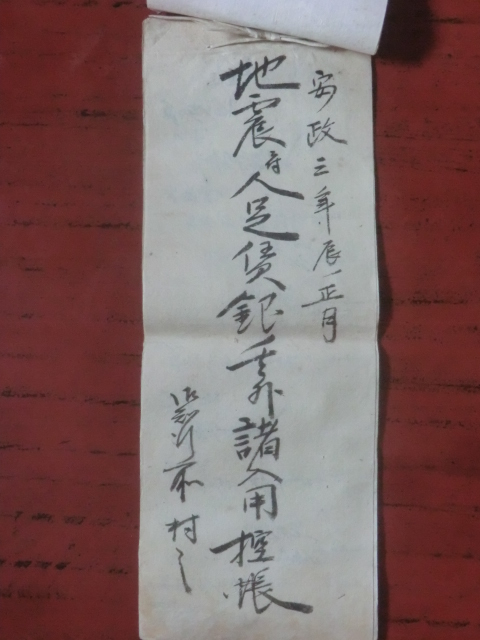 安政三年辰正月
地震ニ付人足賃銀其外諸入用控帳
村